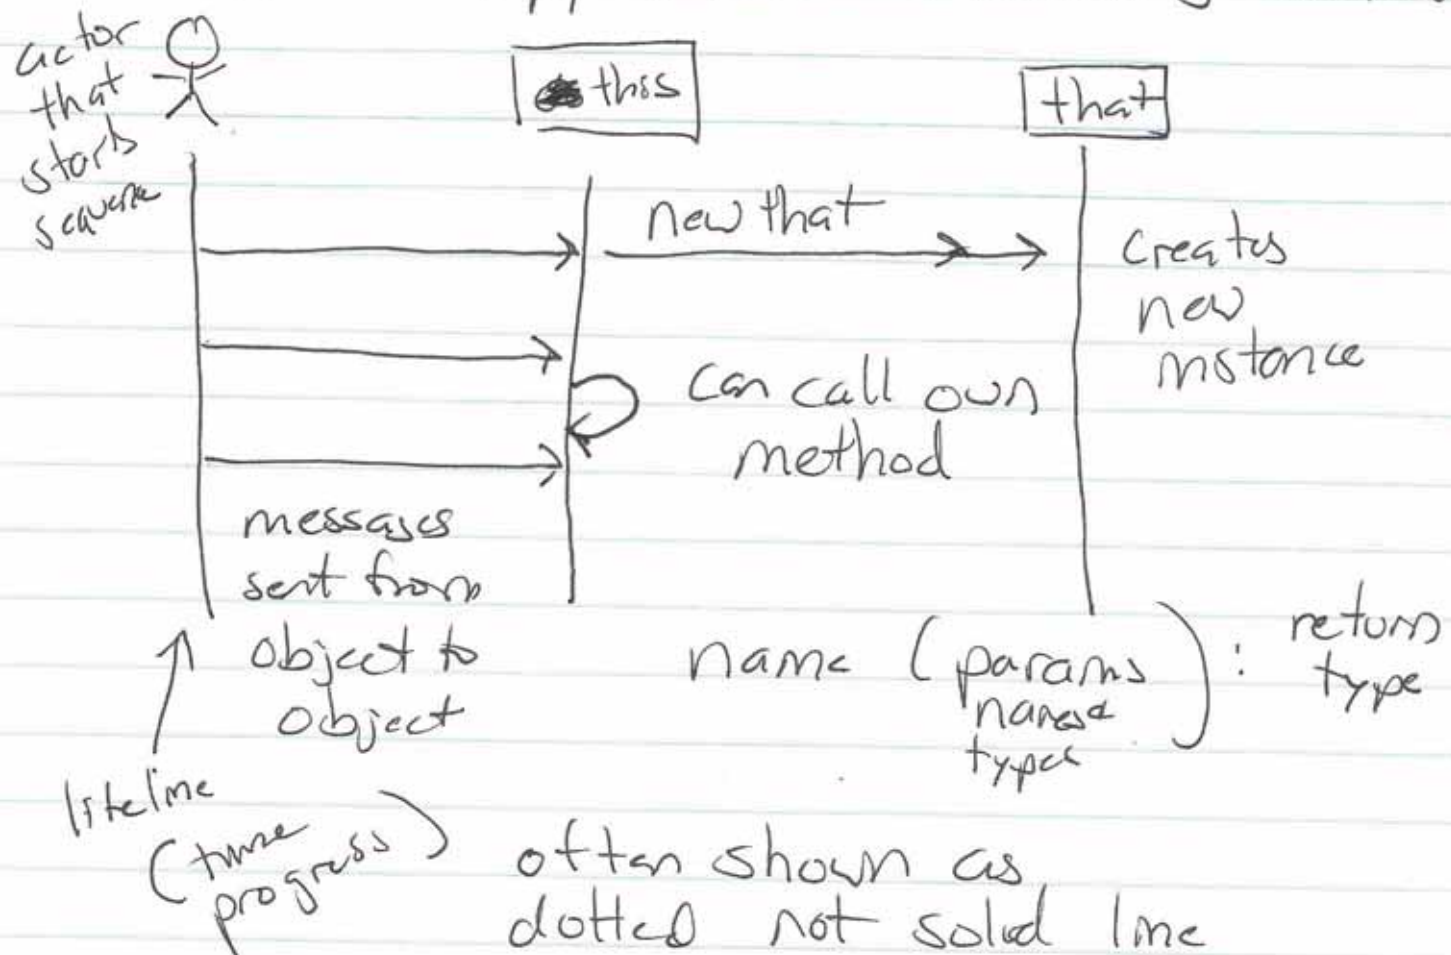 actor
that
starts
sequence
this
that
new that
creates
new
instance
can call own
method
messages
sent from
object to
object
name (params : return
names & type
types)
lifeline
(time
progress)
often shown as
dotted not solid line